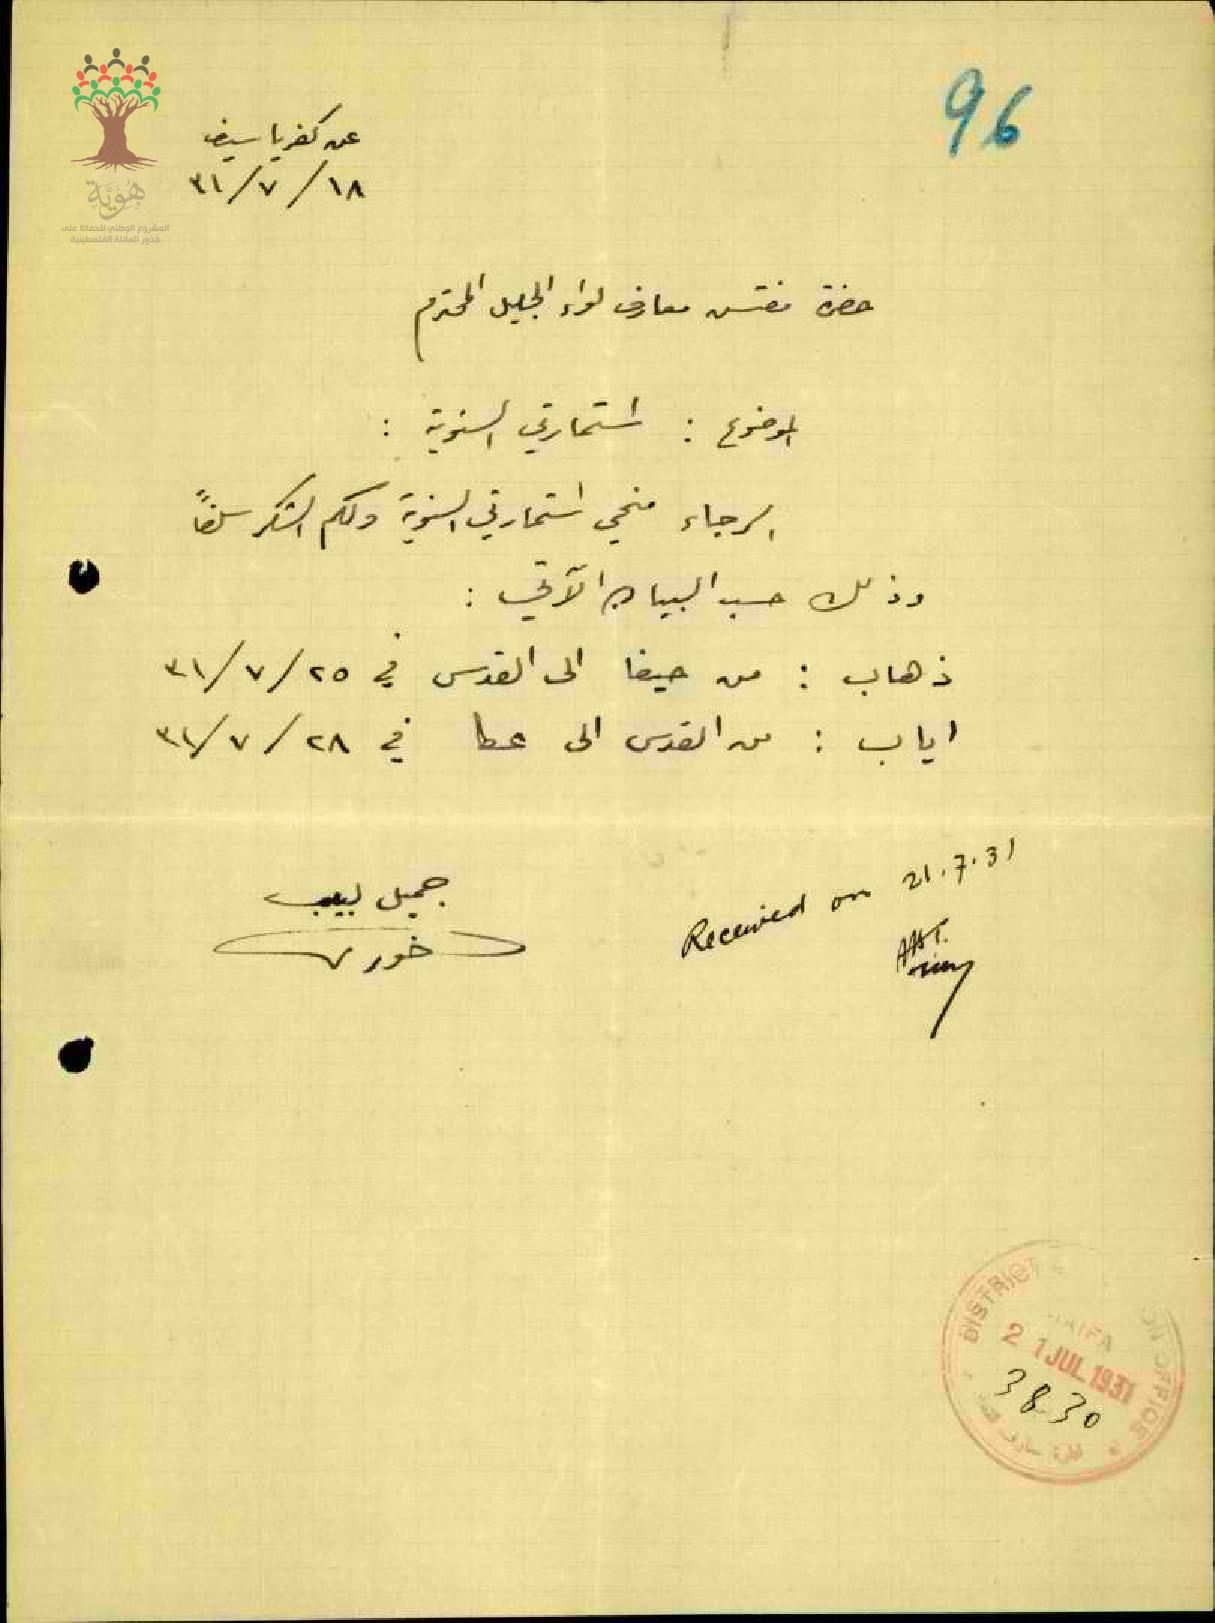 96
عن كفرياسيف
١٨/٧/٣١
هُويَّة
المشروع الوطني للحفاظ على
جذور العائلة الفلسطينية
حضرة مفتش معارف لواء الجليل المحترم
الموضوع : استمارتي السنوية :
الرجاء منحي استمارتي السنوية ولكم الشكر سلفاً
وذلك حسب البيان الآتي :
ذهاب : من حيفا الى القدس في ٢٥/٧/٣١
اياب : من القدس الى عكا في ٢٨/٧/٣١
جميل لبيب
خوري
Received on 21.7.31
DISTRICT ON OFFICE
HAIFA
21 JUL 1931
3830
ادارة معارف